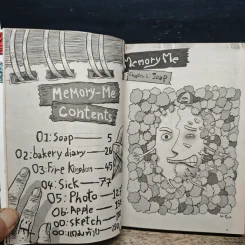 Memory-Me
Contents
01:Soap 5
02:bakery diary 26
03:Fire Kingdom 45
04:Sick 77
05:Photo
06:Apple
00:Sketch
Memory Me
Soap